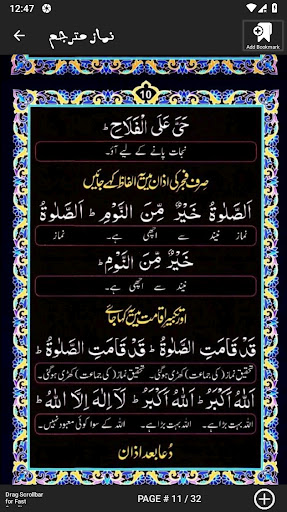 12:47
نماز مترجم
Add Bookmark
10
حَیَّ عَلَی الْفَلَاحِ ؕ
نجات پانے کے لیے آؤ۔
صرف فجر کی اذان میں یہ الفاظ کہے جائیں
اَلصَّلٰوةُ خَيْرٌ مِّنَ النَّوْمِ ؕ اَلصَّلٰوةُ
نماز نیند سے اچھی ہے۔ نماز
خَيْرٌ مِّنَ النَّوْمِ ؕ
نیند سے اچھی ہے۔
اور تکبیر اقامت میں یہ کہا جائے
قَدْ قَامَتِ الصَّلٰوةُ ؕ قَدْ قَامَتِ الصَّلٰوةُ ؕ
تحقیق نماز (کی جماعت) کھڑی ہوگئی۔ تحقیق نماز (کی جماعت) کھڑی ہوگئی۔
اَللّٰهُ اَكْبَرُ ؕ اَللّٰهُ اَكْبَرُ ؕ لَاۤ اِلٰهَ اِلَّا اللّٰهُ ؕ
اللہ بہت بڑا ہے۔ اللہ بہت بڑا ہے۔ اللہ کے سوا کوئی معبود نہیں۔
دُعا بعد اذان
Drag Scrollbar
for Fast
PAGE # 11 / 32